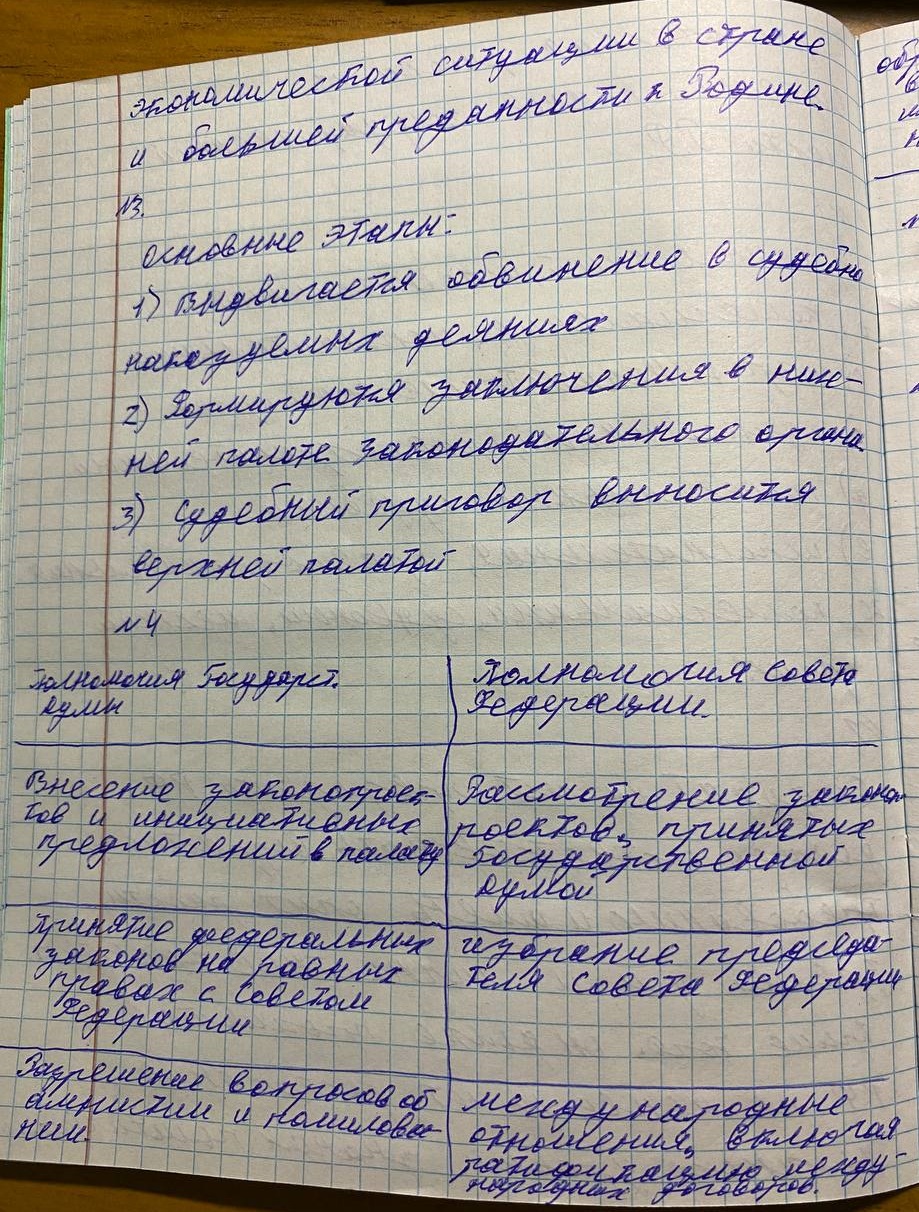 экономической ситуации в стране
и большей преданности к Родине.
№3.
основные этапы:
1) Выдвигается обвинение в судебно
наказуемых деяниях
2) Формируются заключения в ниж-
ней палате законодательного органа
3) Судебный приговор выносится
верхней палатой
№4
Полномочия Государст.
думы
Полномочия Совета
Федерации.
Внесение законопроек-
тов и инициативных
предложений в палату
Рассмотрение законоп-
роектов, принятых
Государственной
думой
Принятие федеральных
законов на равных
правах с Советом
Федерации
избрание председа-
теля Совета Федерации
Разрешение вопросов об
амнистии и помилова-
нии.
международные
отношения, включая
ратификацию между-
народных договоров.